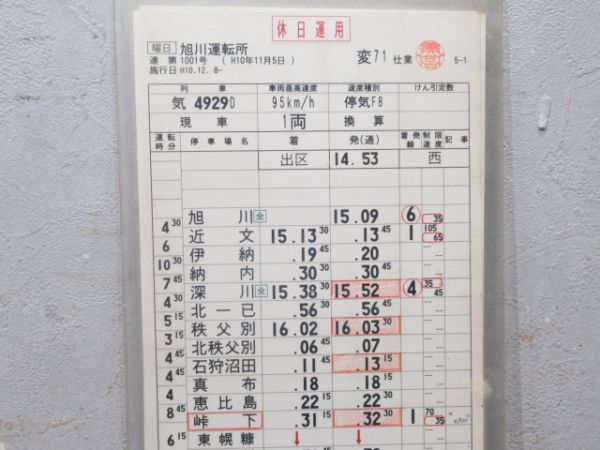 休日運用
曜日 旭川運転所
達 第 1001号 ( H10年11月5日 ) 変71 仕業 5-1
施行日 H10.12. 8-
列車 車両最高速度 速度種別 けん引定数
気 4929D 95km/h 停気F8
現車 1両 換算
運転時分 停車場名 着 発(通) 着発線 制限速度 記事
出区 14.53 西
旭川 全 15.09 6 35
4 30
近文 15.13 30 .13 45 1 105 65
6
伊納 .19 45 .20
10 30
納内 .30 30 .30 45
7 45
深川 全 15.38 30 15.52 4 35 45
4
北一已 .56 30 .56 45
5 15
秩父別 16.02 16.03 30
3 15
北秩父別 .06 45 .07
4 45
石狩沼田 .11 45 .13 15
4 45
真布 .18 .18 15
4
恵比島 .22 15 .22 30
8 45
峠下 .31 15 .32 30 1 70 35
6 15
東幌糠 ↓ ↓